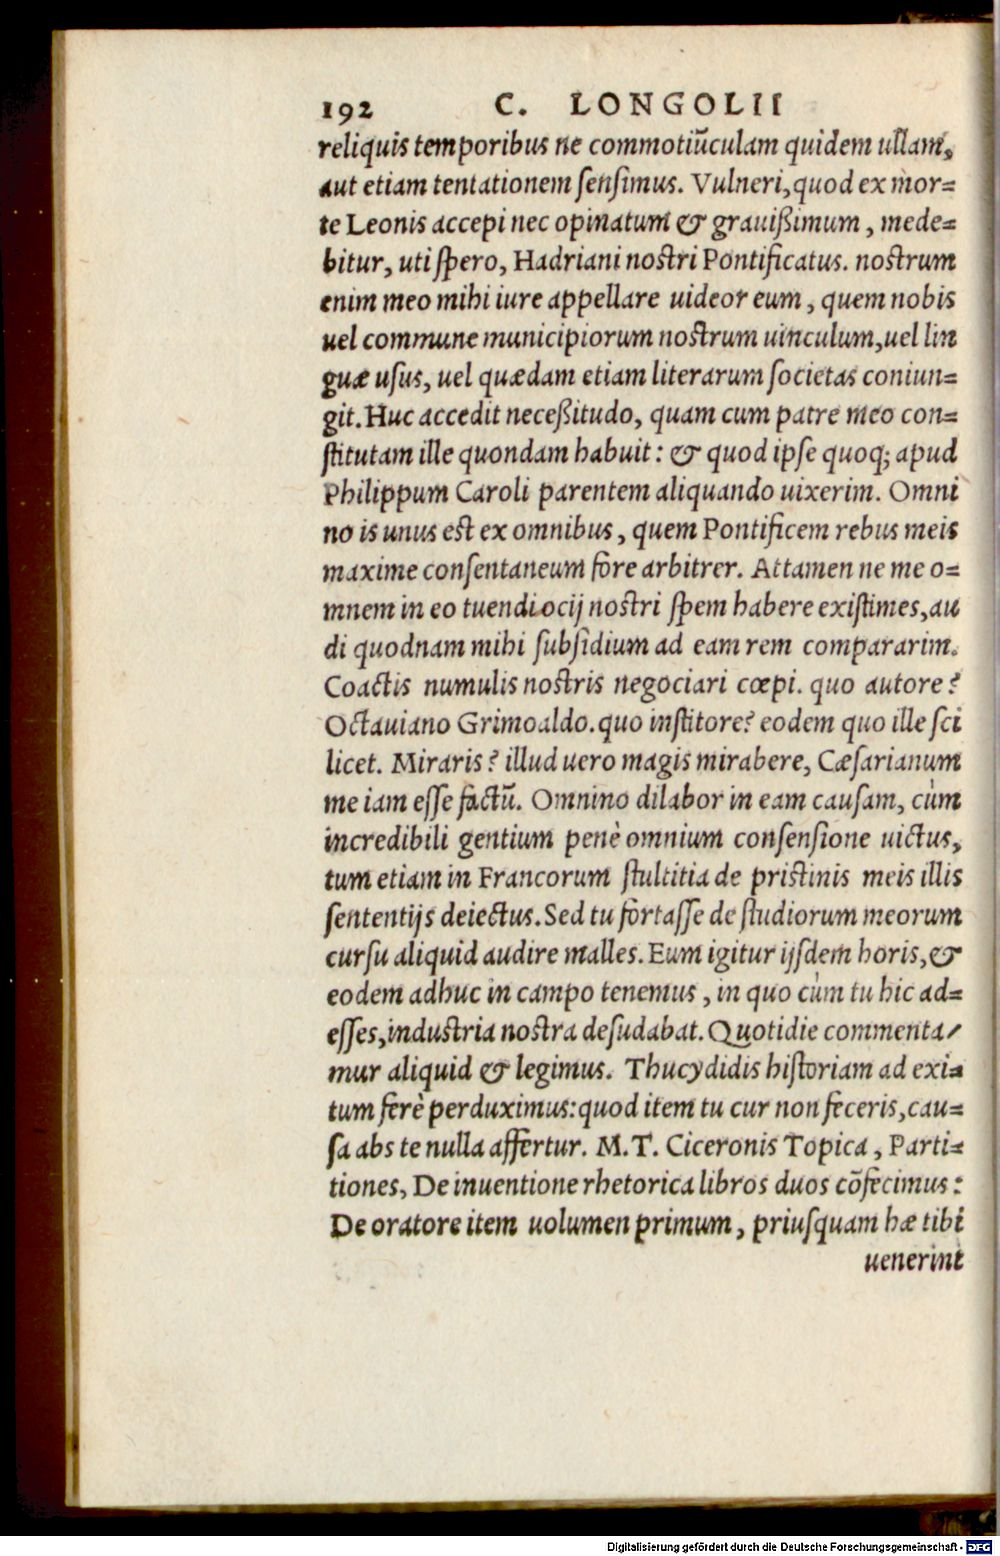 192 C. LONGOLII
reliquis temporibus ne commotiũculam quidem ullam,
aut etiam tentationem sensimus. Vulneri, quod ex mor=
te Leonis accepi nec opinatum & grauißimum, mede=
bitur, uti spero, Hadriani nostri Pontificatus. nostrum
enim meo mihi iure appellare uideor eum, quem nobis
uel commune municipiorum nostrum uinculum, uel lin
guæ usus, uel quædam etiam literarum societas coniun=
git. Huc accedit neceßitudo, quam cum patre meo con=
stitutam ille quondam habuit: & quod ipse quoq; apud
Philippum Caroli parentem aliquando uixerim. Omni
no is unus est ex omnibus, quem Pontificem rebus meis
maxime consentaneum fore arbitrer. Attamen ne me o=
mnem in eo tuendi ocij nostri spem habere existimes, au
di quodnam mihi subsidium ad eam rem compararim.
Coactis numulis nostris negociari cœpi. quo autore?
Octauiano Grimoaldo. quo institore? eodem quo ille sci
licet. Miraris? illud uero magis mirabere, Cæsarianum
me iam esse factũ. Omnino dilabor in eam causam, cùm
incredibili gentium penè omnium consensione uictus,
tum etiam in Francorum stultitia de pristinis meis illis
sententijs deiectus. Sed tu fortasse de studiorum meorum
cursu aliquid audire malles. Eum igitur ijsdem horis, &
eodem adhuc in campo tenemus, in quo cùm tu hic ad=
esses, industria nostra desudabat. Quotidie commenta/
mur aliquid & legimus. Thucydidis historiam ad exi=
tum ferè perduximus: quod item tu cur non feceris, cau=
sa abs te nulla affertur. M. T. Ciceronis Topica, Parti=
tiones, De inuentione rhetorica libros duos cõfecimus:
De oratore item uolumen primum, priusquam hæ tibi
uenerint
Digitalisierung gefördert durch die Deutsche Forschungsgemeinschaft - DFG